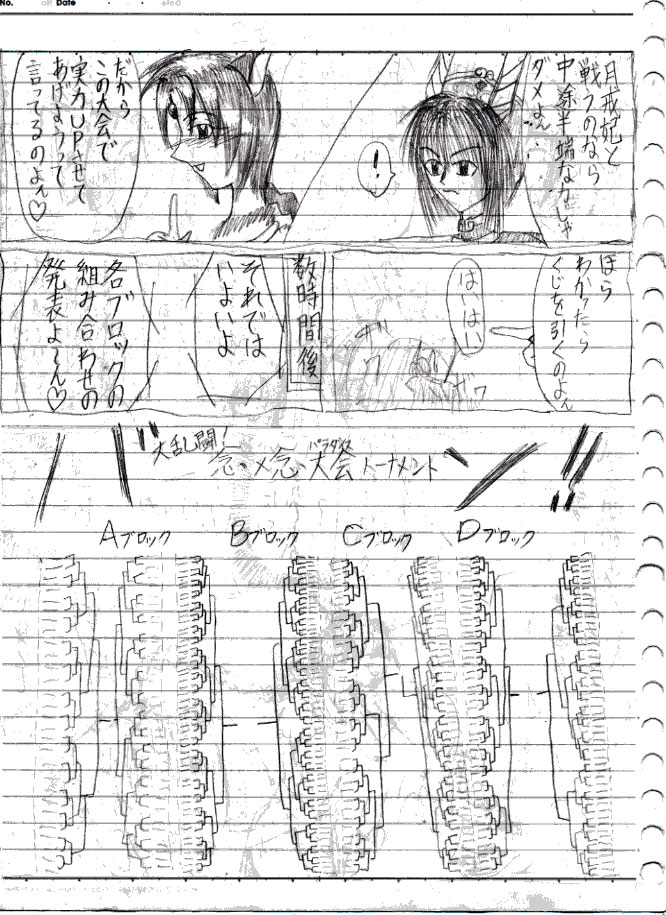 No.
Date
月戒妃と
戦うのなら
中途半端なワじゃ
ダメよん
!
だから
この大会で
実力UPさせて
あげようって
言ってるのよん♡
ほら
わかったら
くじを引くのよん
はいはい
ザワ
ザワ
数時間後
それでは
いよいよ
各ブロックの
組み合わせの
発表よ〜ん♡
バン!!
大乱闘!
念・〆念・大会トーナメント
パラダイス
Aブロック
Bブロック
Cブロック
Dブロック